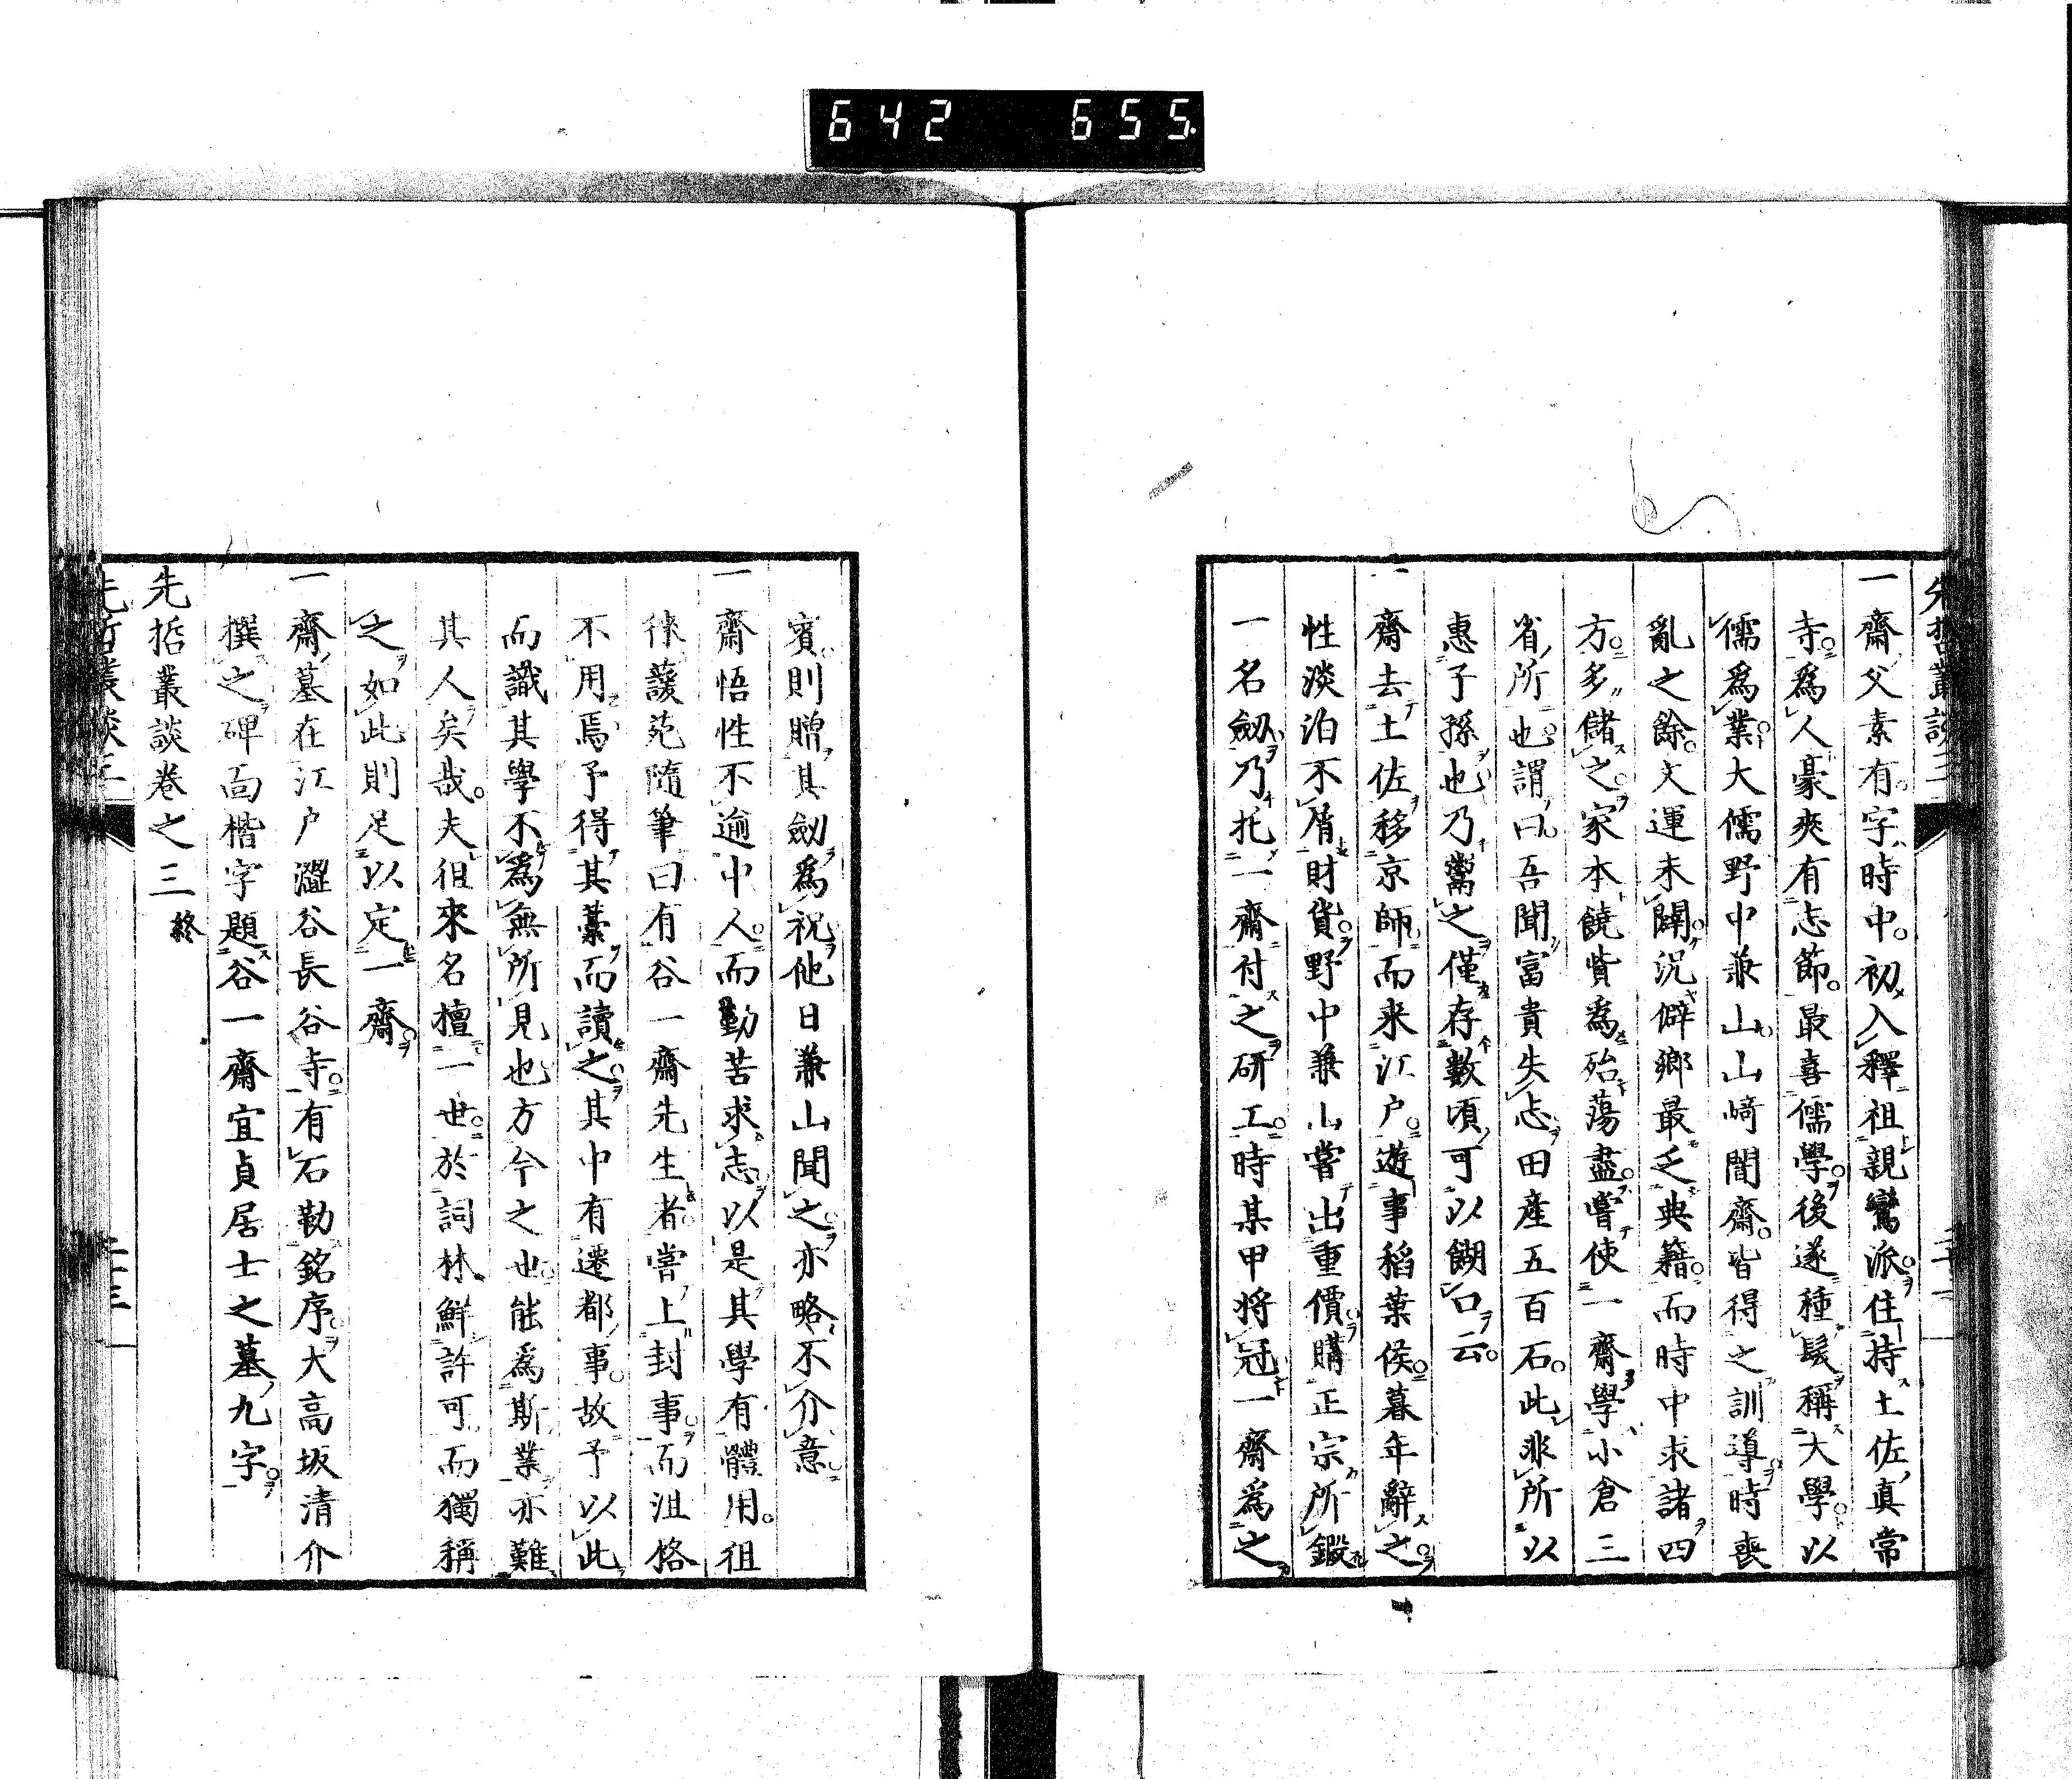 642 655
先哲叢談三
一齋父素有字時中。初入釋祖親鸞派。住持土佐真常
寺。爲人豪爽有志節。最喜儒學。後遂種髮稱大學。以
儒爲業。大儒野中兼山山﨑闇齋。皆得之訓導。時喪
亂之餘。文運未闢。況僻鄉最乏典籍。而時中求諸四
方。多儲之。家本饒貲爲殆蕩盡。嘗使一齋學小倉三
省所也。謂曰吾聞富貴失志。田産五百石。此非所以
惠子孫也。乃鬻之。僅存數頃可以餬口云。
一齋去土佐移京師。而來江户。遊事稻葉侯。暮年辭之。
性淡泊不屑財貨。野中兼山嘗出重價。購正宗所鍛
一名劔。乃托一齋付之研工。時某甲將冠一齋爲之
賓。則贈其劔爲祝。他日兼山聞之。亦略不介意。
一齋悟性不逾中人。而勤苦求志。以是其學有體用。徂
徠蘐苑隨筆曰有谷一齋先生者。嘗上封事。而沮格
不用焉。予得其藁而讀之。其中有遷都事。故予以此
而識其學不爲無所見也。方今之也。能爲斯業亦難
其人矣哉。夫徂來名檀一世。於詞林鮮許可。而獨稱
之如此。則足以定一齋。
一齋墓在江户澀谷長谷寺。有石勒銘序。大高坂清介
撰之。碑面楷字題谷一齋宜貞居士之墓九字。
先哲叢談卷之三 終
先哲叢談三 二十三